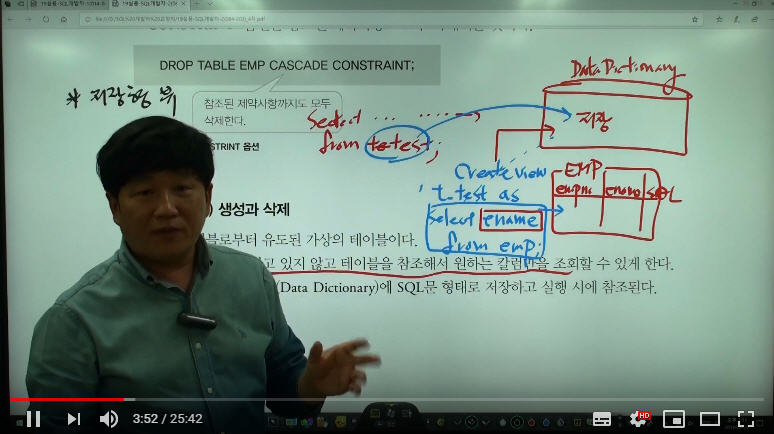 DROP TABLE EMP CASCADE CONSTRAINT;
* 저장형 뷰
참조된 제약사항까지도 모두
삭제한다.
STRINT 옵션
Data Dictionary
저장
Select ... ........
from t-test;
Create view
t-test as
select ename
from emp;
EMP
empno ename
생성과 삭제
블로부터 유도된 가상의 테이블이다.
고 있지 않고 테이블을 참조해서 원하는 칼럼만을 조회할 수 있게 한다.
(Data Dictionary)에 SQL문 형태로 저장하고 실행 시에 참조된다.
3:52 / 25:42
HD